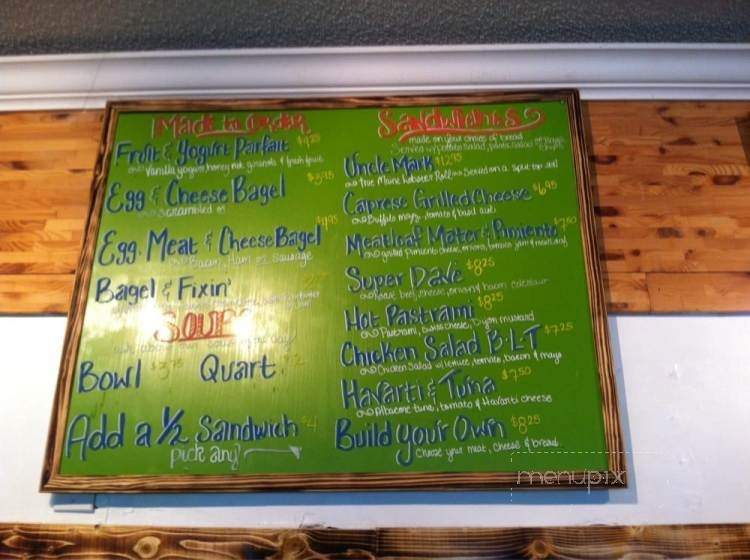 Made to Order
Fruit & Yogurt Parfait $4.25
Vanilla yogurt, honey nut granola & fresh fruit
Egg & Cheese Bagel $3.95
scrambled
Egg, Meat & Cheese Bagel $4.95
Bacon, Ham or Sausage
Bagel & Fixin'
SOUP
ask about our soup
Bowl $3.75 Quart
Add a ½ Sandwich $4
pick any!
Sandwiches
made on your choice of bread
Served w/ potato salad, pasta salad or chips
Uncle Mark $12.95
true Maine Lobster Roll Served on a split top roll
Caprese Grilled Cheese $6.95
Buffalo mayo, tomato & basil aioli
Meatloaf Mater & Pimiento $7.50
grilled Pimiento cheese, onions, tomato jam & meatloaf
Super Dave $8.25
roast beef, cheese, onion & bacon
Hot Pastrami $8.25
Pastrami, swiss cheese, Dijon mustard
Chicken Salad B·L·T $7.25
Chicken Salad w/ lettuce, tomato, bacon & mayo
Havarti & Tuna $7.50
Albacore tuna, tomato & Havarti cheese
Build Your Own $8.25
Choose your meat, cheese & bread
menupix